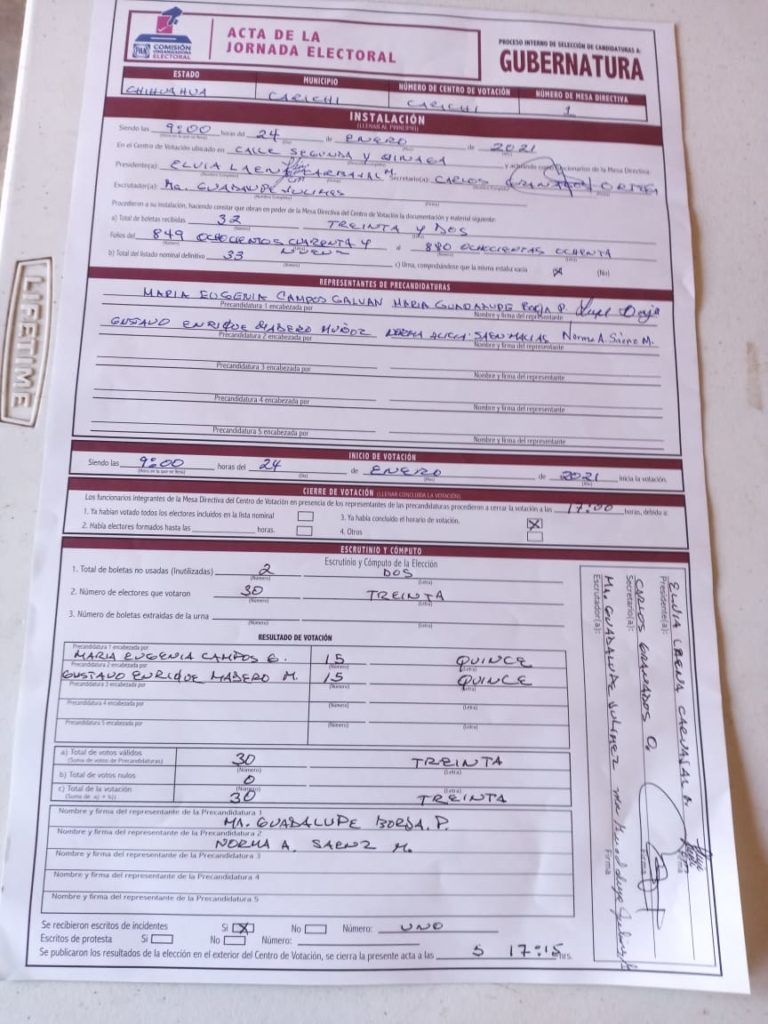 PAN
COMISIÓN
ORGANIZADORA
ELECTORAL
ACTA DE LA
JORNADA ELECTORAL
PROCESO INTERNO DE SELECCIÓN DE CANDIDATURAS A:
GUBERNATURA
ESTADO MUNICIPIO NÚMERO DE CENTRO DE VOTACIÓN NÚMERO DE MESA DIRECTIVA
CHIHUAHUA CARICHI CARICHI 1
INSTALACIÓN
(LLENAR AL PRINCIPIO)
Siendo las 9:00 horas del 24 de ENERO de 2021
En el Centro de Votación ubicado en CALLE SEGUNDA Y OJINAGA y actuando como funcionarios de la Mesa Directiva:
Presidente(a): ELVIA LAENA CARBAJAL M. Secretario(a): CARLOS GRANADOS ORTEGA
Escrutador(a): Ma. GUADALUPE JULIMES
Procedieron a su instalación, haciendo constar que obran en poder de la Mesa Directiva del Centro de Votación la documentación y material siguiente:
a) Total de boletas recibidas 32 TREINTA Y DOS
(Número) (Letra)
Folios del 849 OCHOCIENTOS CUARENTA Y NUEVE a 880 OCHOCIENTAS OCHENTA
b) Total del listado nominal definitivo 33 c) Urna, comprobándose que la misma estaba vacía (No)
REPRESENTANTES DE PRECANDIDATURAS
MARIA EUGENIA CAMPOS GALVAN MARIA GUADALUPE BORJA P. Lupe Borja
Precandidatura 1 encabezada por Nombre y firma del representante
GUSTAVO ENRIQUE MADERO MUÑOZ NORMA ALICIA SAENZ MACIAS Norma A. Sáenz M.
Precandidatura 2 encabezada por Nombre y firma del representante
Precandidatura 3 encabezada por Nombre y firma del representante
Precandidatura 4 encabezada por Nombre y firma del representante
Precandidatura 5 encabezada por Nombre y firma del representante
INICIO DE VOTACIÓN
Siendo las 9:00 horas del 24 de ENERO de 2021 inicia la votación.
CIERRE DE VOTACIÓN (LLENAR CONCLUIDA LA VOTACIÓN)
Los funcionarios integrantes de la Mesa Directiva del Centro de Votación en presencia de los representantes de las precandidaturas procedieron a cerrar la votación a las 17:00 horas, debido a:
1. Ya habían votado todos los electores incluidos en la lista nominal 3. Ya había concluido el horario de votación. X
2. Había electores formados hasta las horas. 4. Otros
ESCRUTINIO Y CÓMPUTO
Escrutinio y Cómputo de la Elección
1. Total de boletas no usadas (Inutilizadas) 2 DOS
(Número) (Letra)
2. Número de electores que votaron 30 TREINTA
(Número) (Letra)
3. Número de boletas extraídas de la urna
(Número) (Letra)
RESULTADO DE VOTACIÓN
Precandidatura 1 encabezada por
MARIA EUGENIA CAMPOS G. 15 QUINCE
Precandidatura 2 encabezada por (Número) (Letra)
GUSTAVO ENRIQUE MADERO M. 15 QUINCE
Precandidatura 3 encabezada por (Número) (Letra)
Precandidatura 4 encabezada por (Número) (Letra)
Precandidatura 5 encabezada por (Número) (Letra)
a) Total de votos válidos 30 TREINTA
(Suma de votos de Precandidaturas) (Número) (Letra)
b) Total de votos nulos 0
(Número) (Letra)
c) Total de la votación 30 TREINTA
(Suma de a) + b)) (Número) (Letra)
Nombre y firma del representante de la Precandidatura 1
MA. GUADALUPE BORJA. P.
Nombre y firma del representante de la Precandidatura 2
NORMA A. SAENZ M.
Nombre y firma del representante de la Precandidatura 3
Nombre y firma del representante de la Precandidatura 4
Nombre y firma del representante de la Precandidatura 5
Se recibieron escritos de incidentes Si X No Número: UNO
Escritos de protesta Si No Número:
Se publicaron los resultados de la elección en el exterior del Centro de Votación, se cierra la presente acta a las 17:15 hrs.
ELVIA LAENA CARBAJAL M.
Presidente(a): Firma
CARLOS GRANADOS O.
Secretario(a): Firma
Ma. GUADALUPE JULIMEZ
Escrutador(a): Firma
LIFETIME